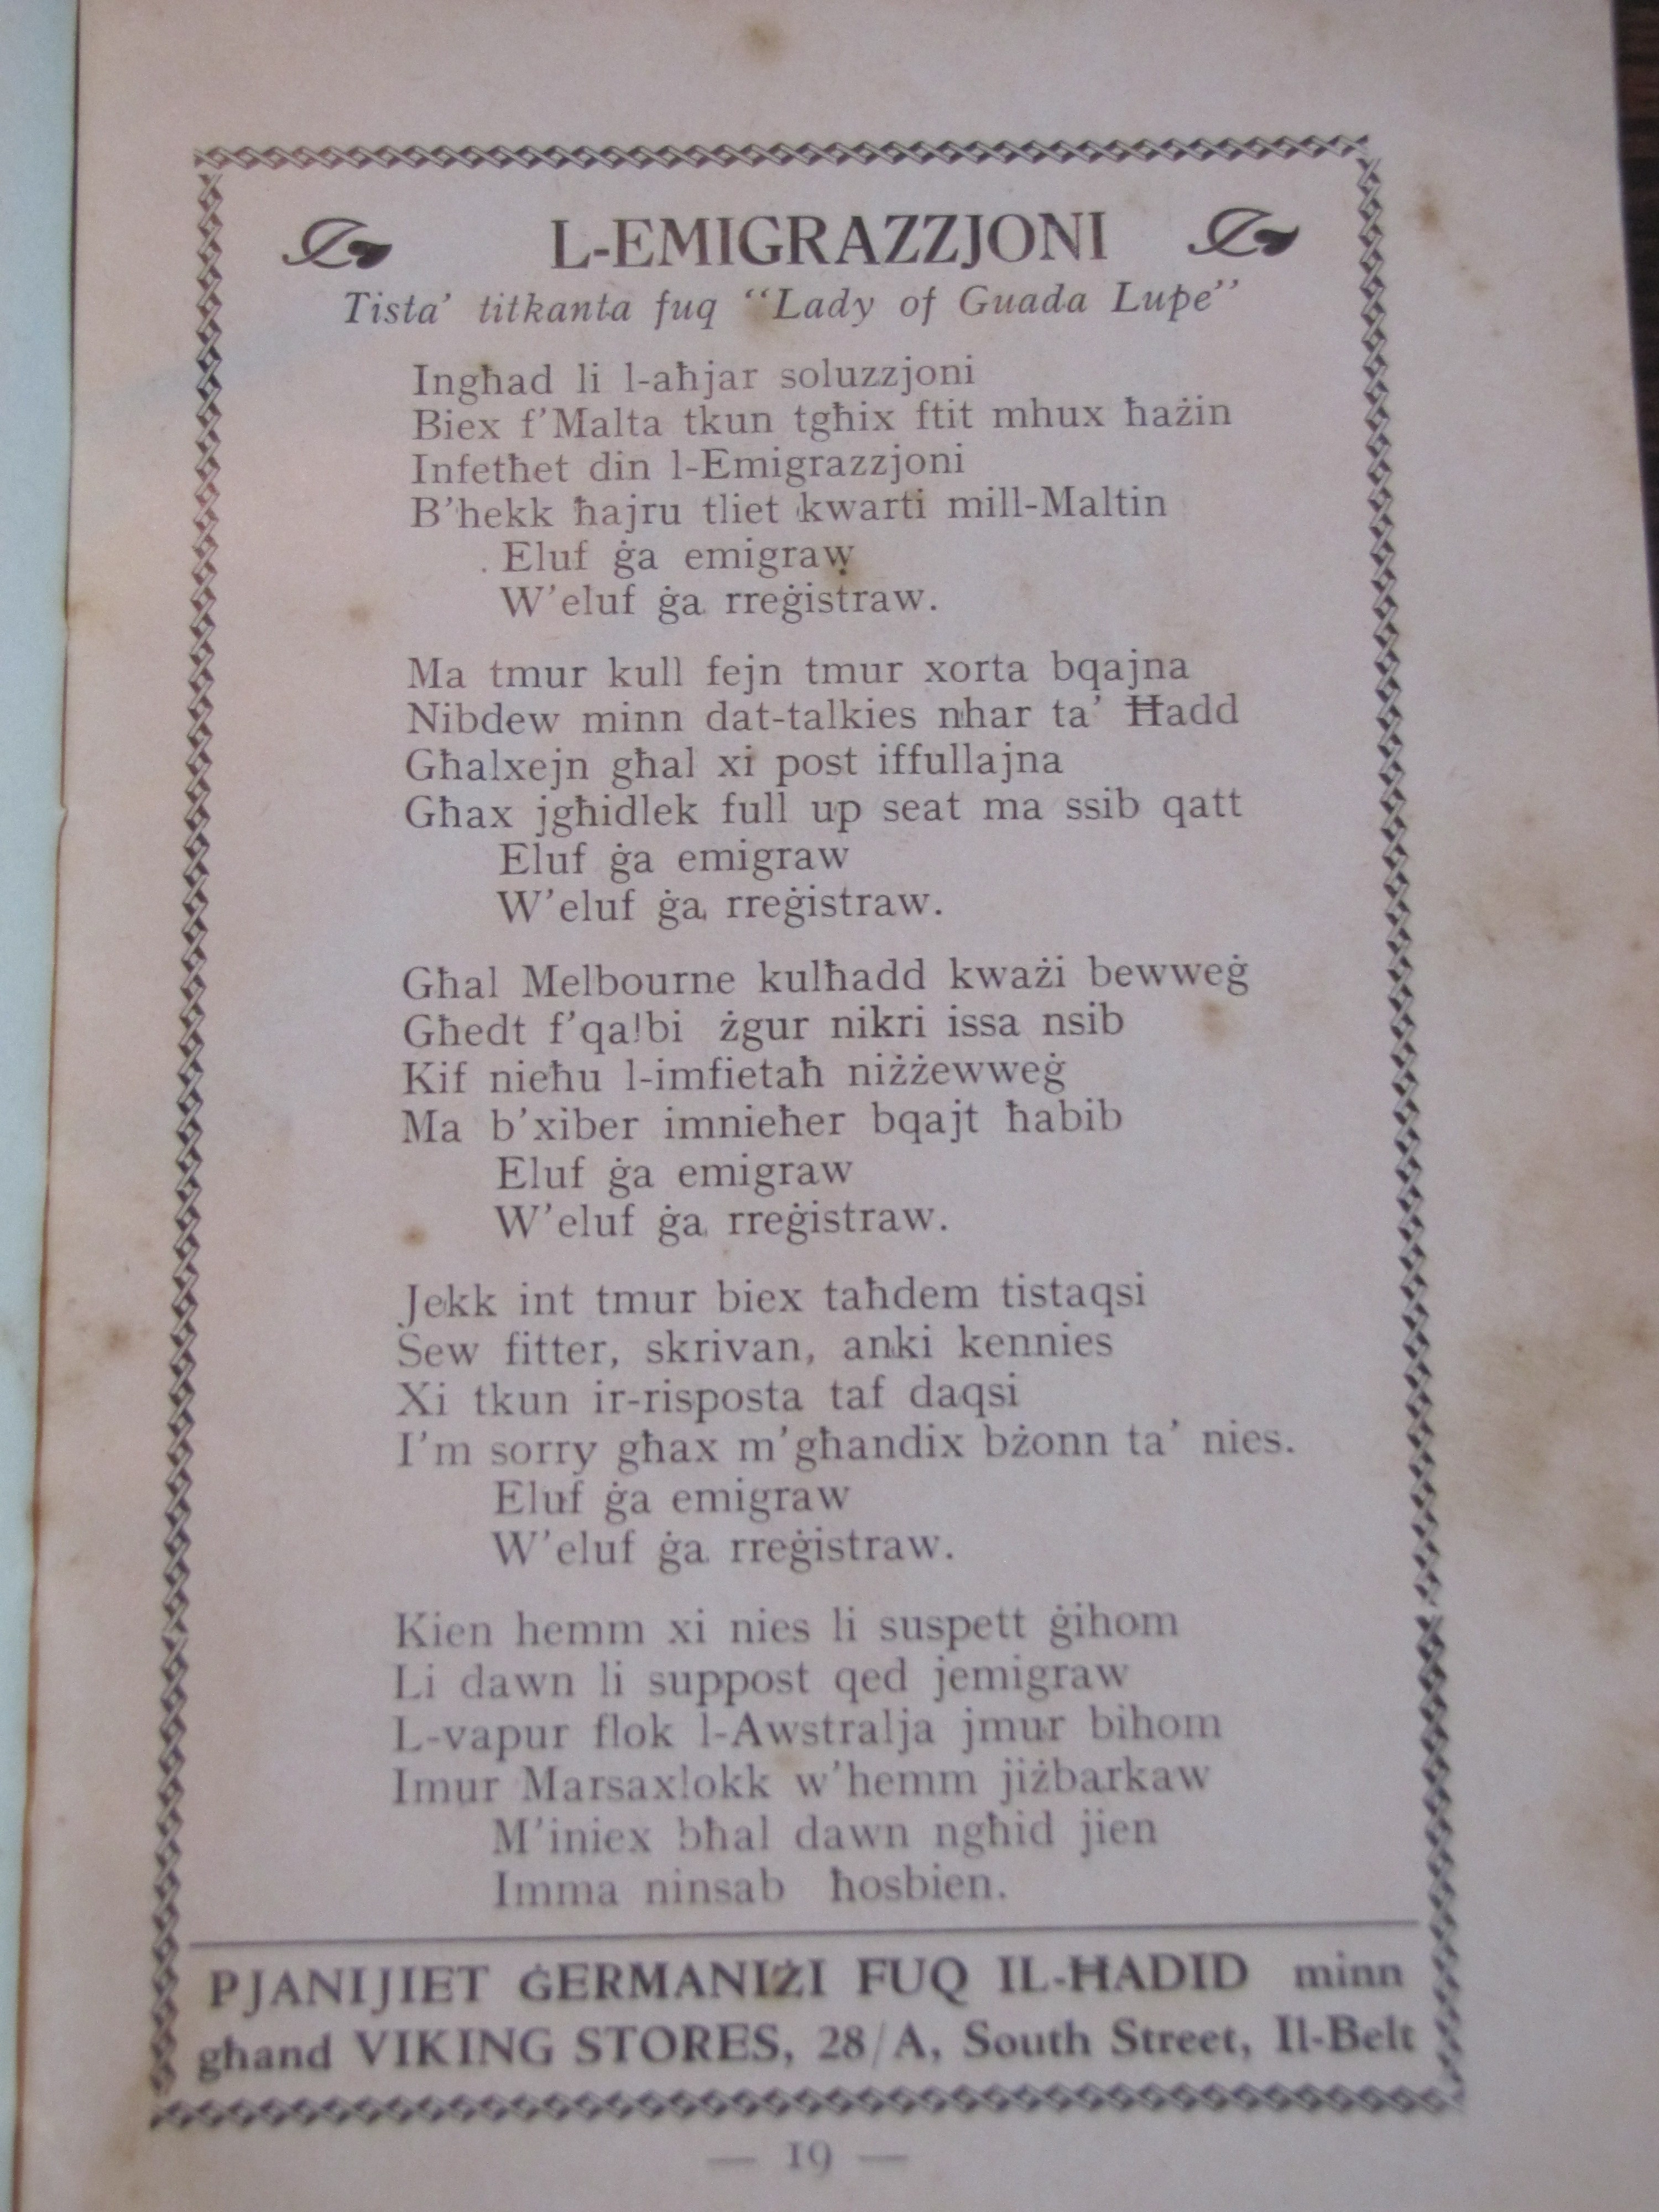 L-EMIGRAZZJONI
Tista' titkanta fuq "Lady of Guada Lupe"
Ingħad li l-aħjar soluzzjoni
Biex f'Malta tkun tgħix ftit mhux ħażin
Infetħet din l-Emigrazzjoni
B'hekk ħajru tliet kwarti mill-Maltin
Eluf ġa emigraw
W'eluf ġa rreġistraw.
Ma tmur kull fejn tmur xorta bqajna
Nibdew minn dat-talkies nhar ta' Ħadd
Għalxejn għal xi post iffullajna
Għax jgħidlek full up seat ma ssib qatt
Eluf ġa emigraw
W'eluf ġa rreġistraw.
Għal Melbourne kulħadd kważi bewweġ
Għedt f'qalbi żgur nikri issa nsib
Kif nieħu l-imfietaħ niżżewweġ
Ma b'xiber imnieħer bqajt ħabib
Eluf ġa emigraw
W'eluf ġa rreġistraw.
Jekk int tmur biex taħdem tistaqsi
Sew fitter, skrivan, anki kennies
Xi tkun ir-risposta taf daqsi
I'm sorry għax m'għandix bżonn ta' nies.
Eluf ġa emigraw
W'eluf ġa rreġistraw.
Kien hemm xi nies li suspett ġihom
Li dawn li suppost qed jemigraw
L-vapur flok l-Awstralja jmur bihom
Imur Marsaxlokk w'hemm jiżbarkaw
M'iniex bħal dawn ngħid jien
Imma ninsab ħosbien.
PJANIJIET ĠERMANIŻI FUQ IL-ĦADID minn
għand VIKING STORES, 28/A, South Street, Il-Belt
— 19 —